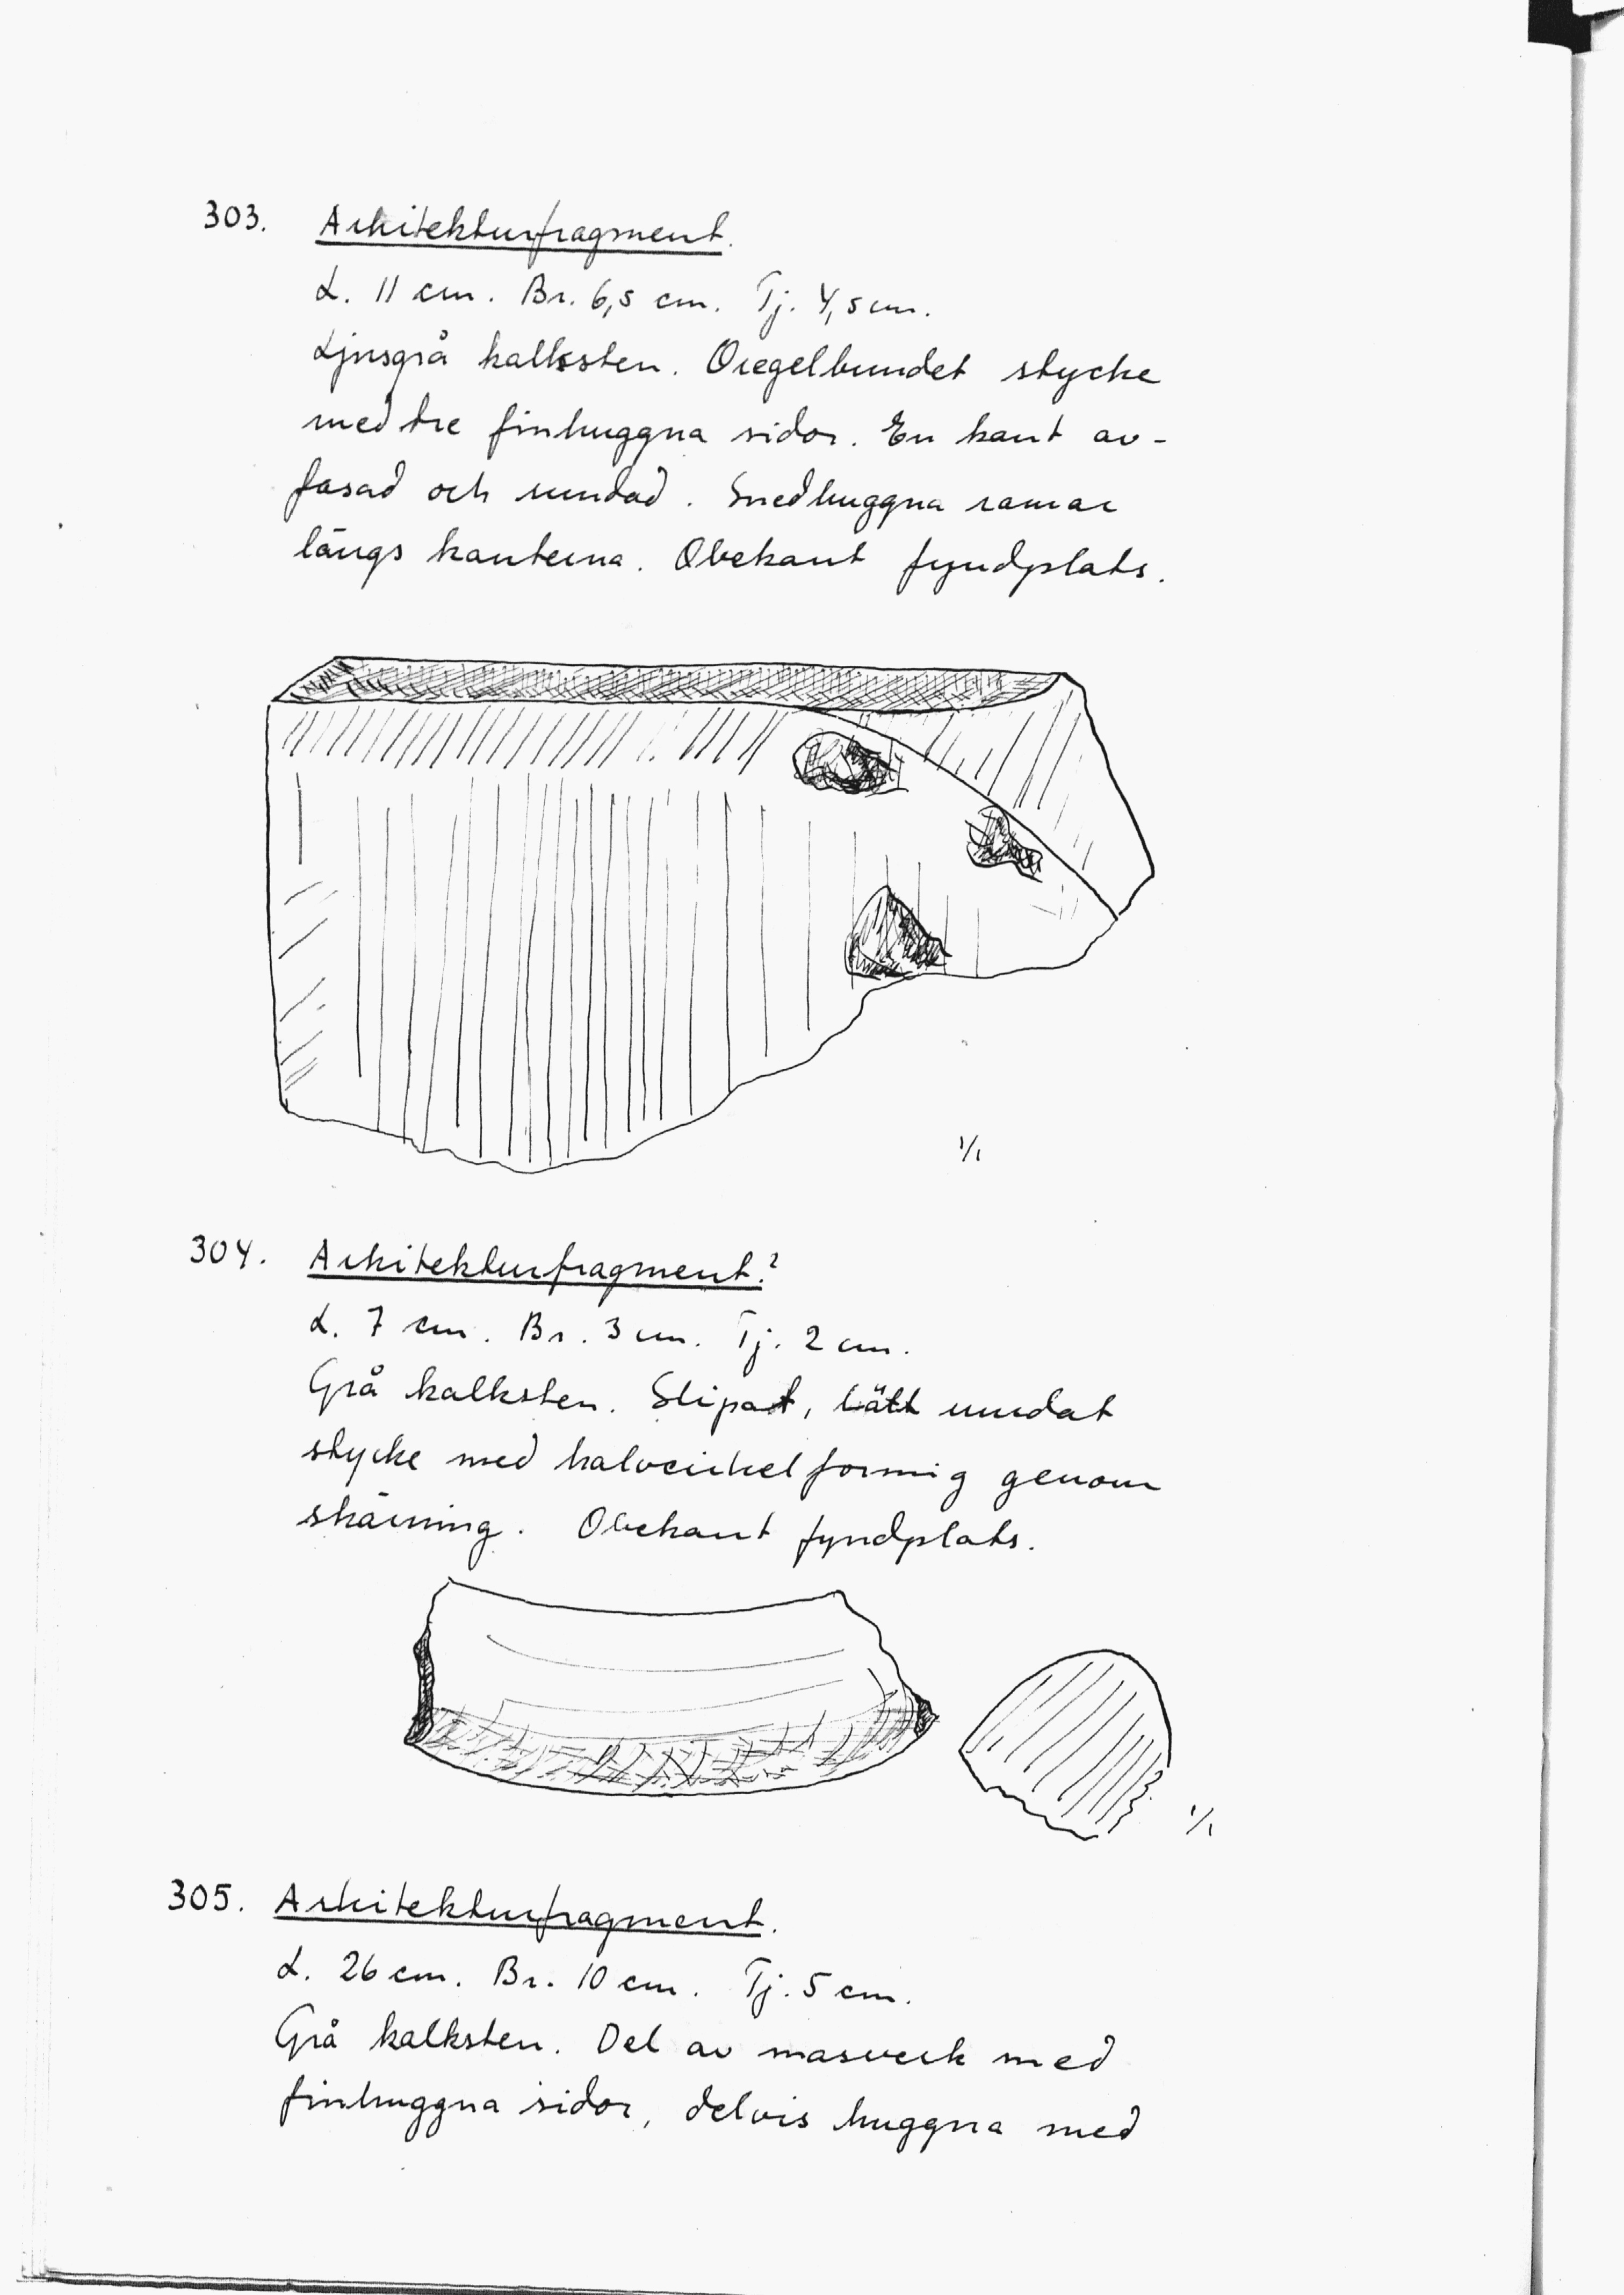 303. Arkitekturfragment.
L. 11 cm. Br. 6,5 cm. Tj. 4,5 cm.
Ljusgrå kalksten. Oregelbundet stycke
med tre finhuggna sidor. En kant av-
fasad och rundad. Snedhuggna ramar
längs kanterna. Obekant fyndplats.
1/1
304. Arkitekturfragment.?
L. 7 cm. Br. 3 cm. Tj. 2 cm.
Grå kalksten. Slipat, lätt rundat
stycke med halvcirkelformig genom
skärning. Obekant fyndplats.
1/1
305. Arkitekturfragment.
L. 26 cm. Br. 10 cm. Tj. 5 cm.
Grå kalksten. Del av masverk med
finhuggna sidor, delvis huggna med